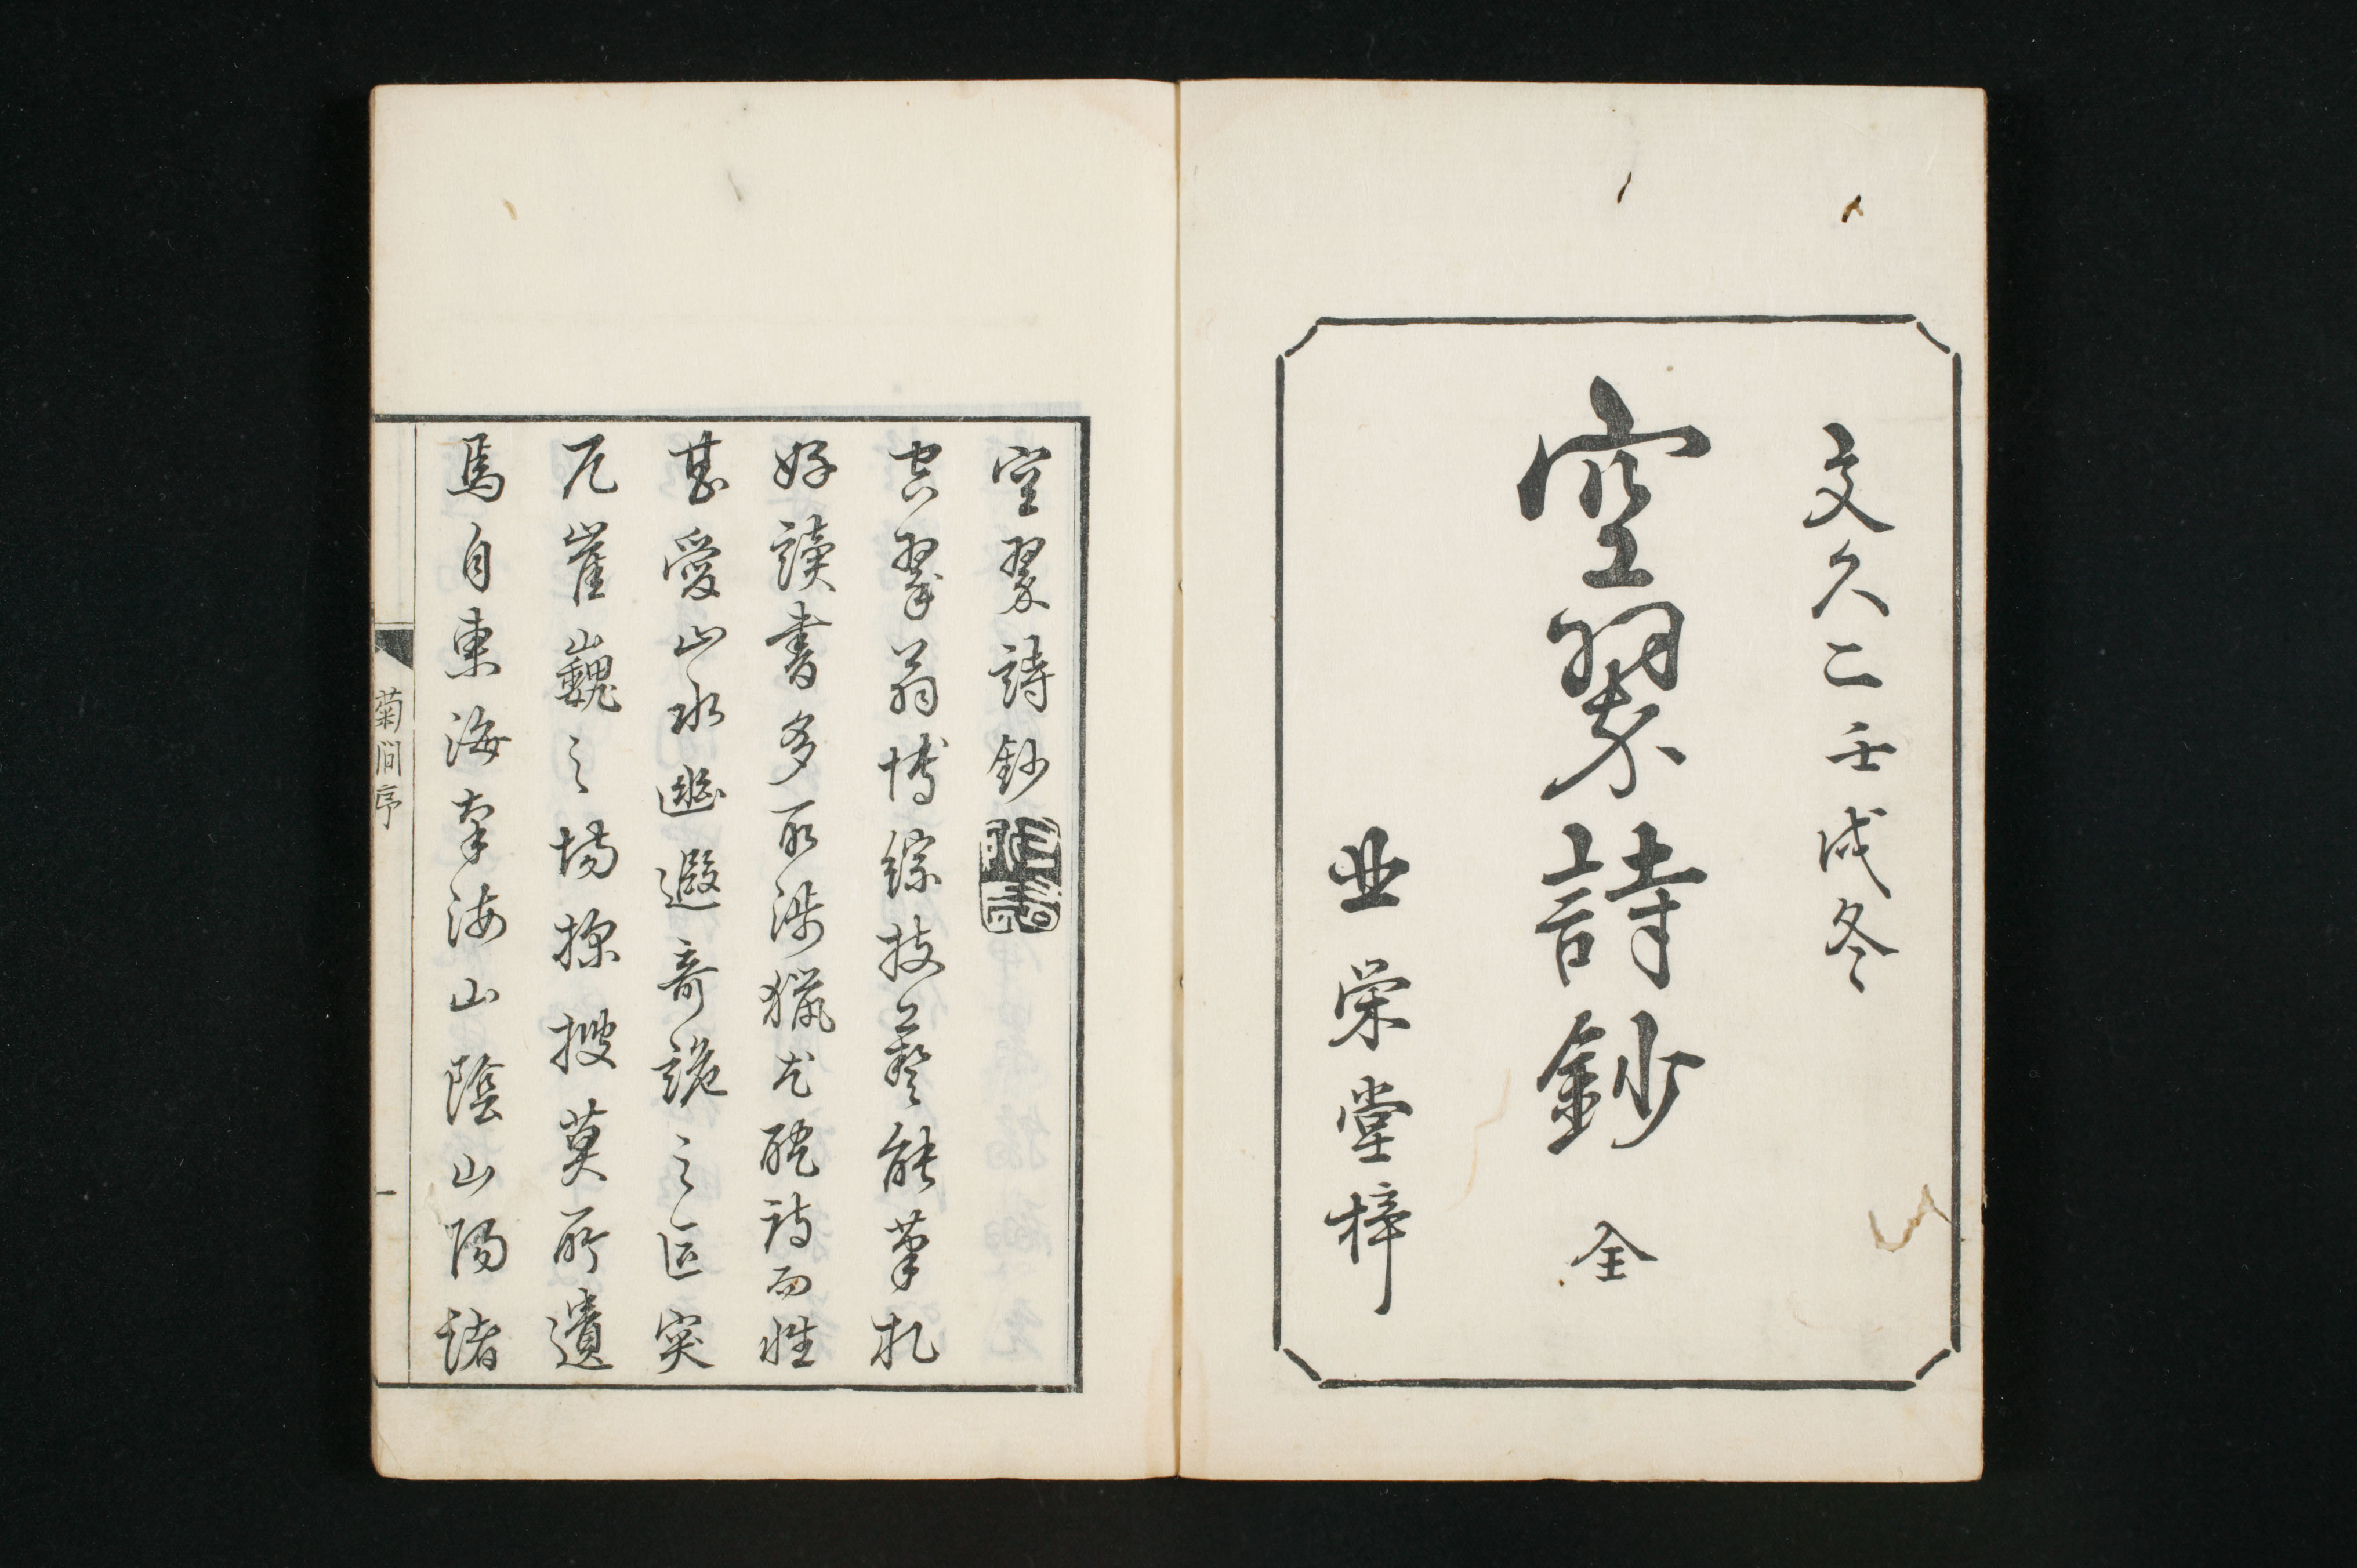 文久二壬戌冬
空翠詩鈔 全
業栄堂梓
空翠詩鈔
空翠翁博綜技藝能筆札
好讀書多所渉猟尤耽詩而性
甚愛山水幽遐奇詭之区突
兀崔巍之場探捜莫所遺
焉自東海南海山陰山陽諸
菊間序
一